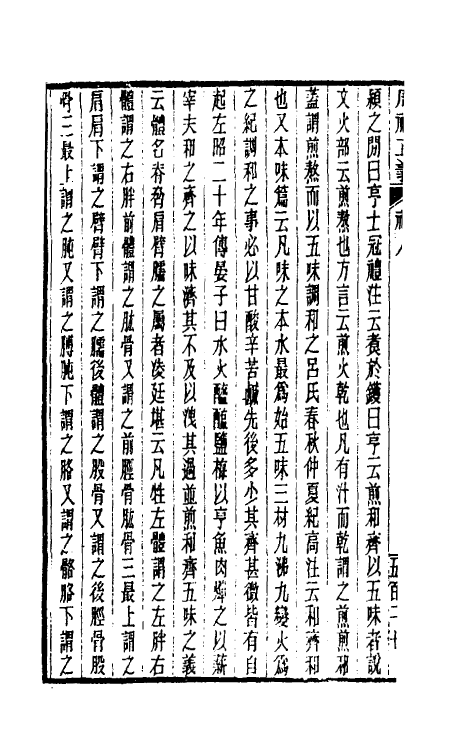 潁之閒曰亨士冠禮注云煑於鑊曰亨云煎和齊以五味者說
文火部云煎熬也方言云煎火乾也凡有汁而乾謂之煎煎邪
蓋謂煎熬而以五味調和之呂氏春秋仲夏紀高注云和齊和
也又本味篇云凡味之本水最爲始五味三材九沸九變火爲
之紀調和之事必以甘酸辛苦鹹先後多少其齊甚微皆有自
起左昭二十年傳晏子曰水火醯醢鹽梅以亨魚肉燀之以薪
宰夫和之齊之以味濟其不及以洩其過並煎和齊五味之義
云體名脊脅肩臂臑之屬者凌廷堪云凡牲左體謂之左胖右
體謂之右胖前體謂之肱骨又謂之前脛骨肱骨三最上謂之
肩肩下謂之臂臂下謂之臑後體謂之股骨又謂之後脛骨股
骨三最上謂之肫又謂之膞肫下謂之胳又謂之骼胳下謂之